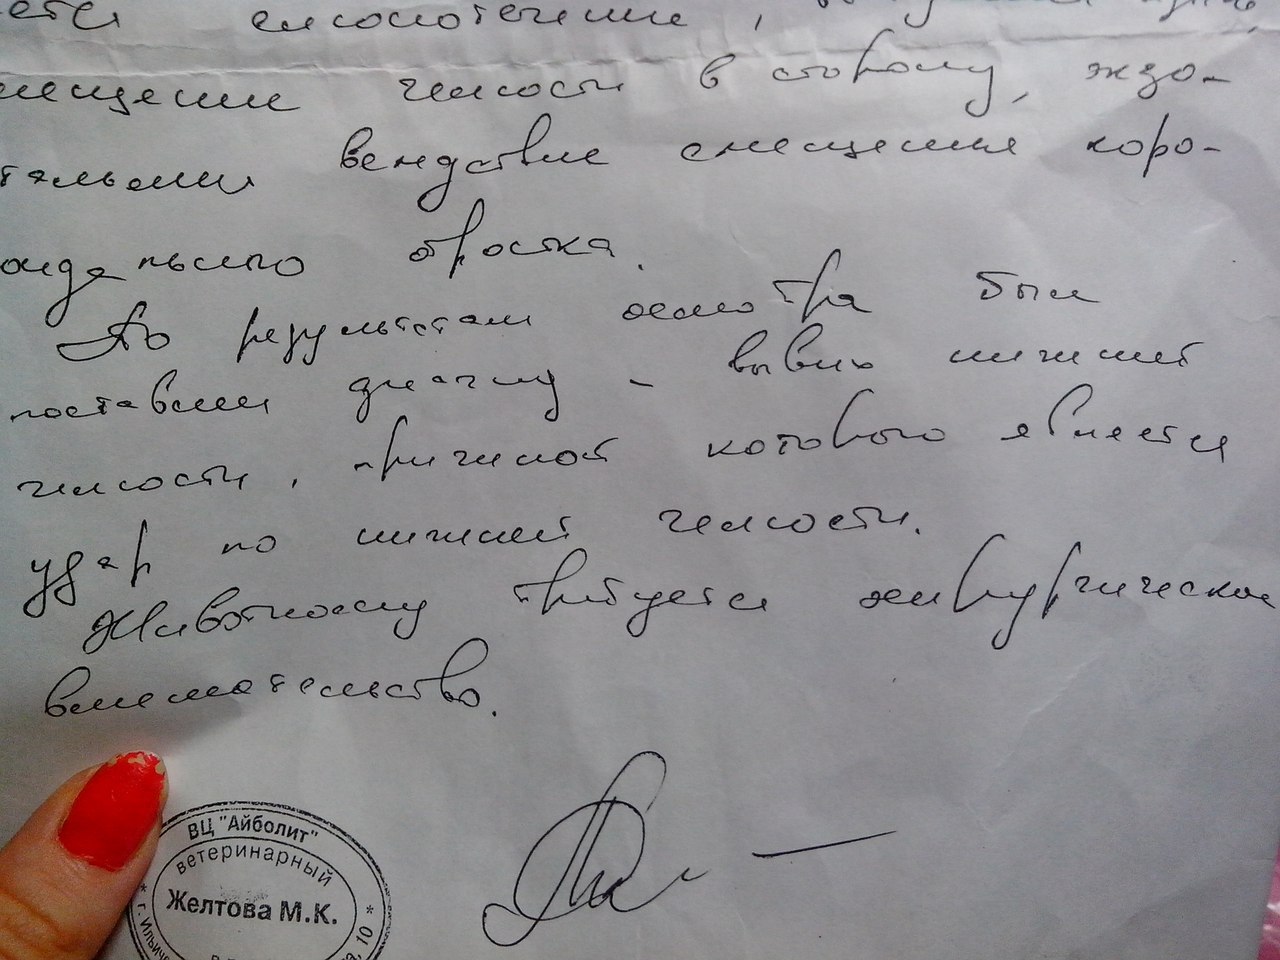 ется слюнотечение,
смещение челюсти в сторону, экзо-
тальми вследствие смещения коро-
оидального отростка.
По результатам осмотра был
поставлен диагноз - вывих нижней
челюсти, причиной которого является
удар по нижней челюсти.
Животному требуется хирургическое
вмешательство.
ВЦ "Айболит"
ветеринарный
Желтова М.К.
* г. Ильиче
а, 10 *